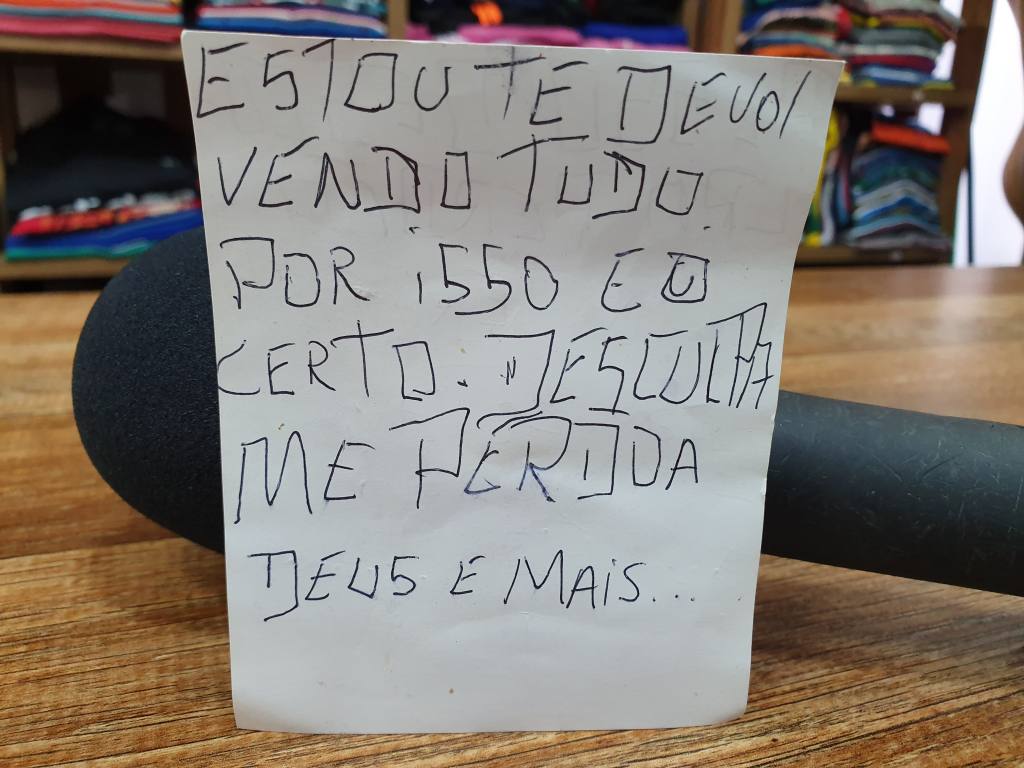 ESTOU TE DEVOL
VENDO TUDO.
POR iSSO E O
CERTO. DESCULPA
ME PERDOA
DEUS E MAiS...